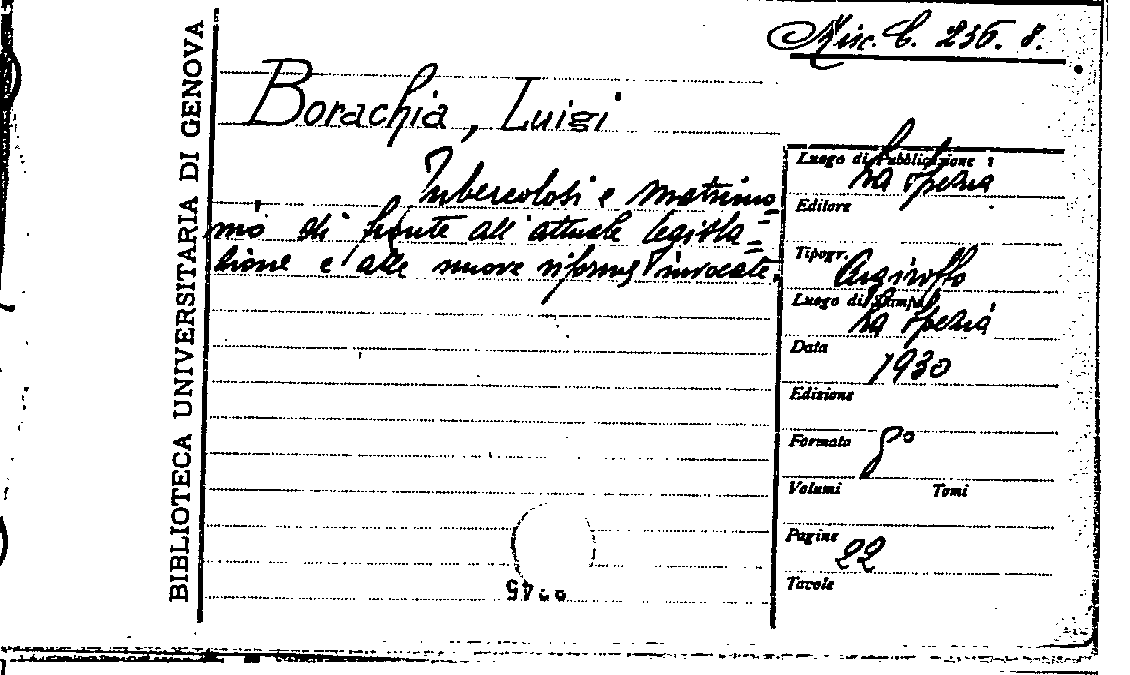 BIBLIOTECA UNIVERSITARIA DI GENOVA
Misc. C. 236. 8.
Borachia, Luigi
Tubercolosi e matrimo=
nio di fronte all'attuale legisla=
zione e alle nuove riforme invocate.
Luogo di Pubblicazione :
La Spezia
Editore
Tipogr. Argiroffo
Luogo di Stampa
La Spezia
Data 1930
Edizione
Formato 8°
Volumi Tomi
Pagine 22
Tavole